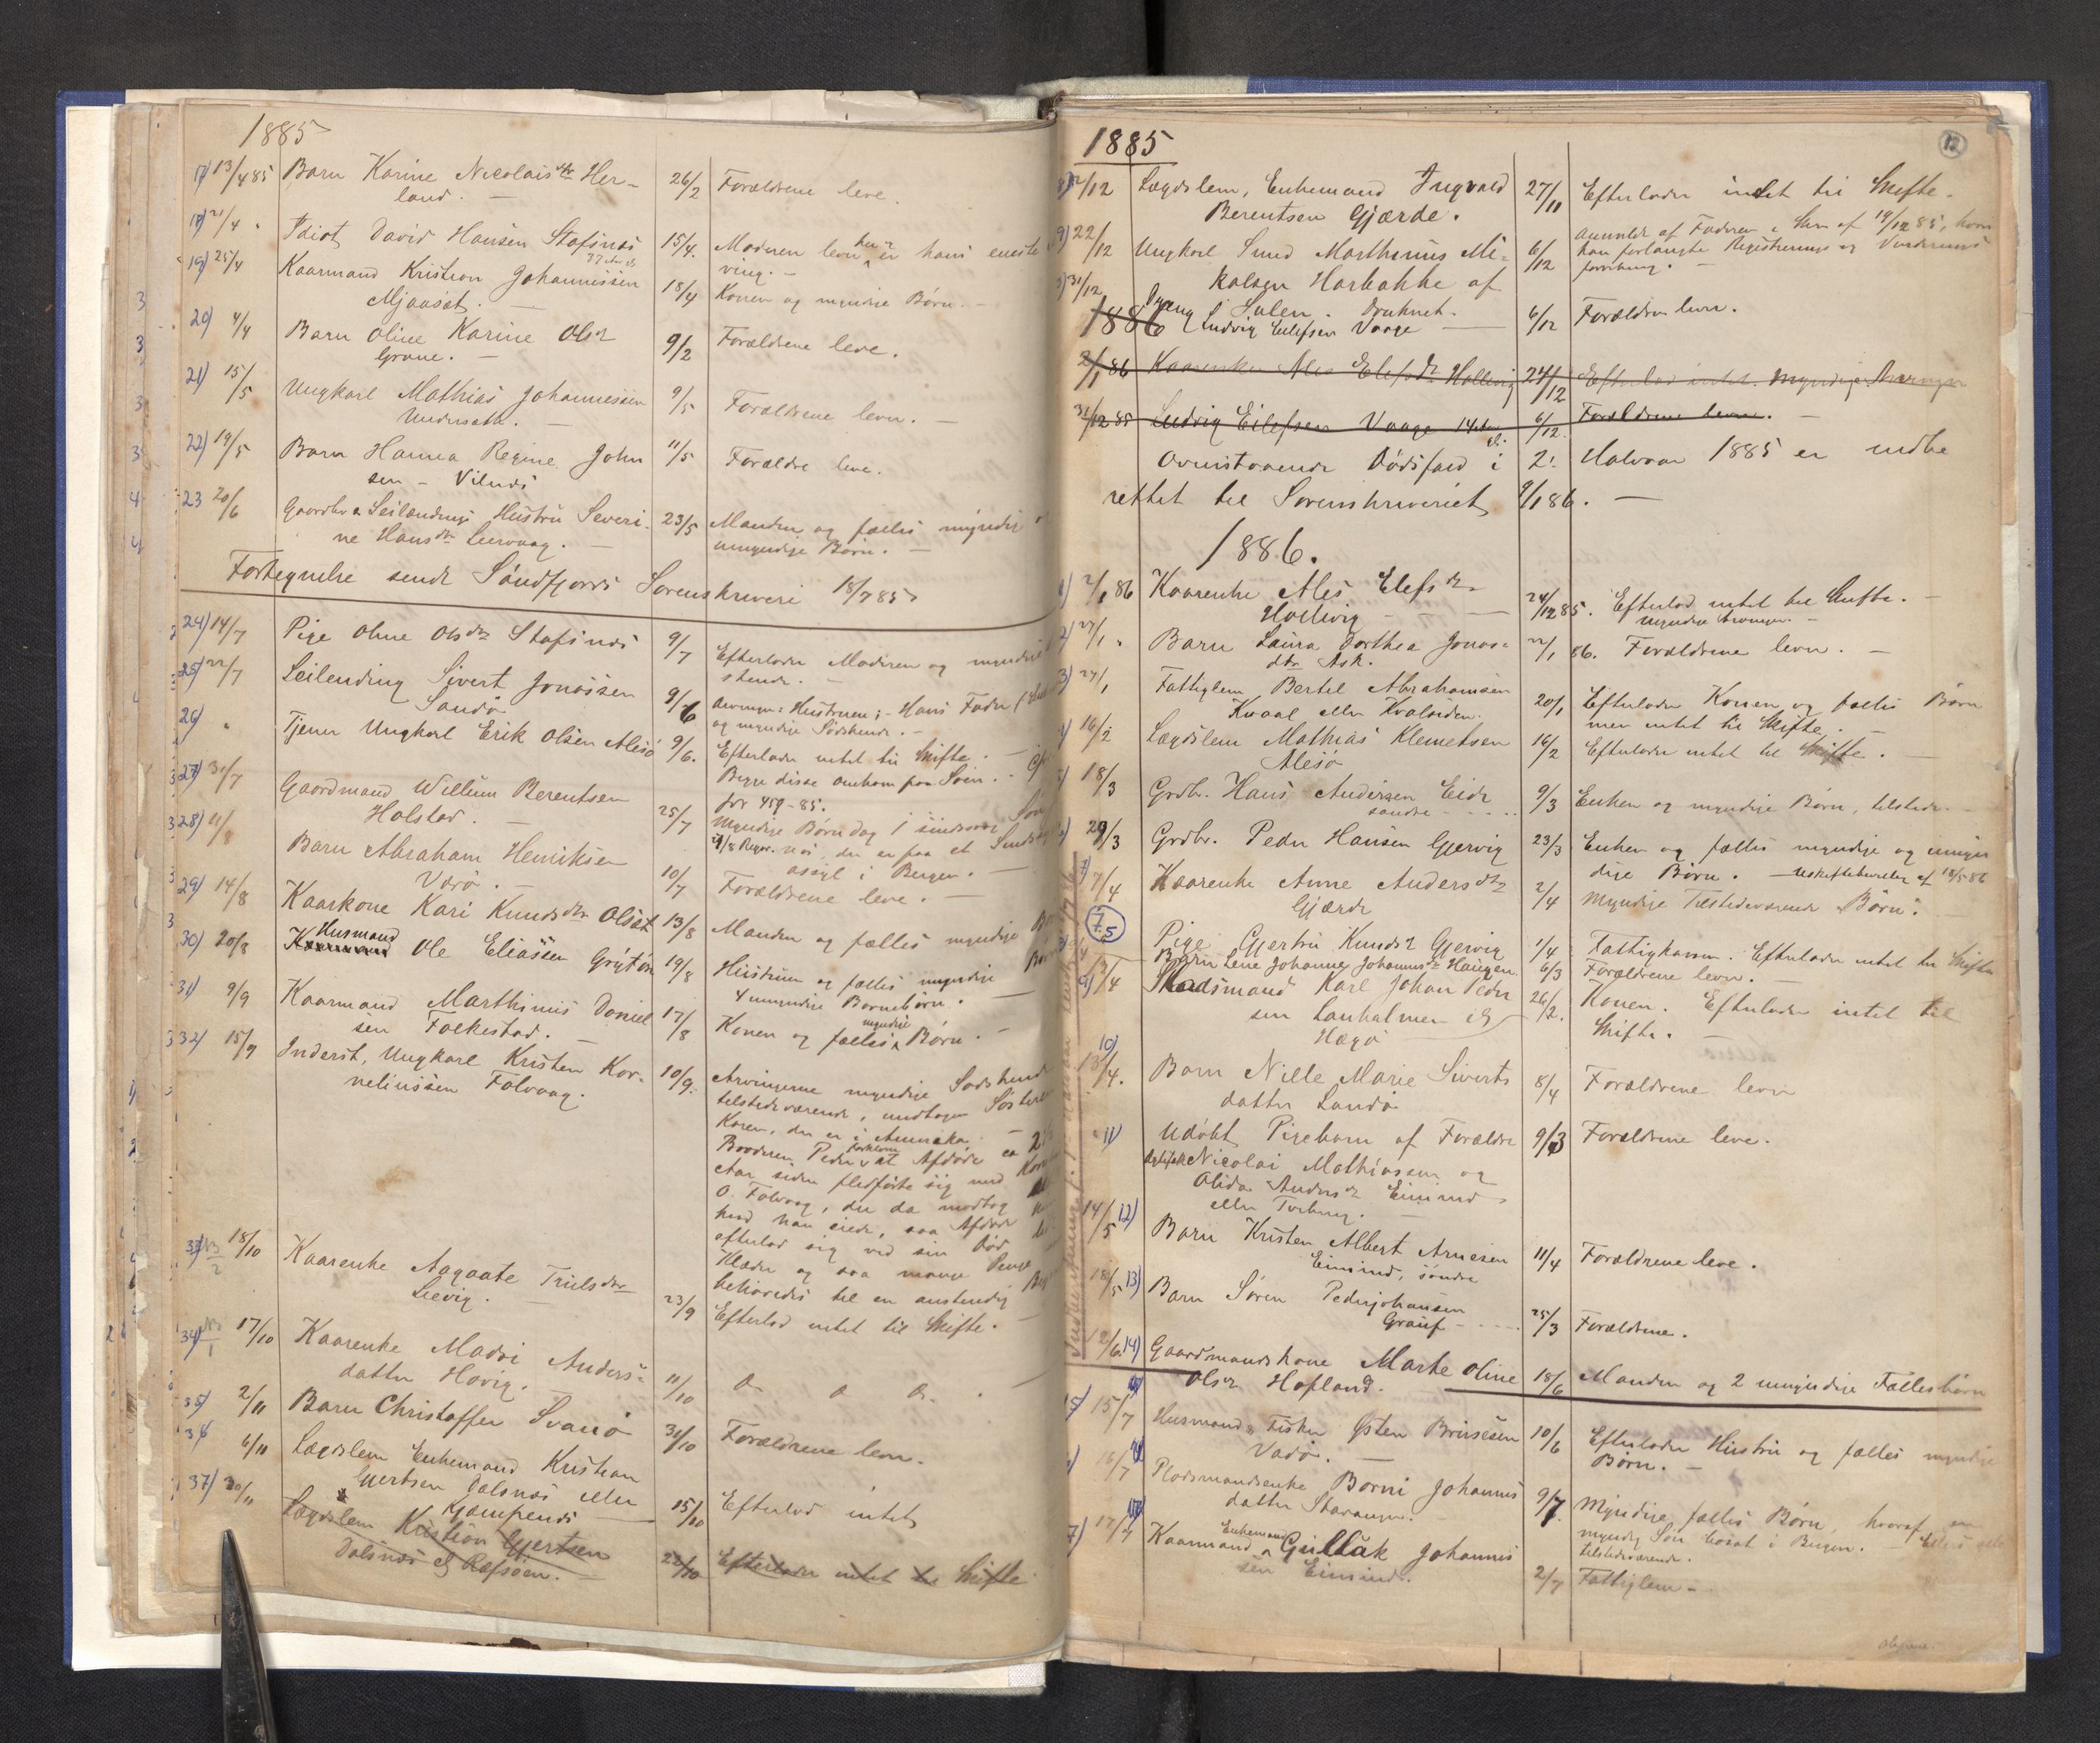 1885
17) 13/4 85 Barn Karine Nicolaisdtr Her-
land. — 26/2 Forældrene leve.
18) 21/4 " Idiot David Hansen Stafsnæs 15/4. Moderen lever
19) 25/4 Kaarmand Kristian Johannessen
Mjaasæt. — 18/4 Konen og myndige Børn. —
20) 4/4 Barn Oline Karine Olsdr
Grane. — 9/2 Forældrene leve.
21) 15/5 Ungkarl Mathias Johannessen
Undersæth. — 9/5 Forældrene lever. —
22) 19/5 Barn Hanna Regine John
sen - Vilnæs 11/5 Forældre leve.
23 20/6 Gaardbr & Leilændings Hustru Severi-
ne Hansdtr Leervaag. — 23/5 Manden og fælles myndige
umyndige Børn. —
Fortegnelse sendt Søndfjords Sorenskriveri 18/7 85
24) 14/7 Pige Oline Olsdtr Stafsnæs 9/7 Efterlader Moderen og myndige
25) 22/7 Leilending Sivert Jonassen
Sandø 9/6 Arvinger: Hustruen; - Hans Fader
og myndige Sødskende. —
26) " Tjener Ungkarl Erik Olsen Alesø 9/6. Efterlader intet til Skifte. —
Begge disse omkom paa Søen.
27) 31/7 Gaardmand Willum Berentsen
Holstad. — 25/7 for 459-85.
Myndige Børn dog 1 sindssvag Søn
der er paa et Sindssyge
assyl i Bergen. —
28) 11/8 Barn Abraham Henriksen
Værø. — 10/7 Forældrene leve. —
29) 14/8 Kaarkone Kari Knudsdtr Olset 13/8 Manden og fælles myndige Børn
30) 20/8 Husmand Ole Eliassen Grytøn 19/8 Hustruen og fælles myndige
4 umyndige Børnebørn. —
31) 9/9 Kaarmand Marthinus Daniel
sen Folkestad. — 17/8 Konen og fælles myndige Børn. —
32) 15/9 Inderst, Ungkarl Kristen Kor-
neliussen Folvaag. 10/9. Arvingerne myndige Sødskende
tilstedeværende, undtagen Søsteren
Karen, der er i Amerika. —
Broderen Peder forklarer at Afdøde ca 2½
Aar siden fledførte sig med
O. Folvaag, der da modtog
hvad han eiede, saa Afdøde
efterlod sig ved sin Død
Klæder og saa mange Penge
behøvedes til en anstendig
33) 18/10 Kaarenke Aagaate Trulsdtr
Leevig. — 23/9 Efterlod intet til Skifte. —
34) 17/10 Kaarenke Madsi Anders-
datter Hovig. 11/10
35) 2/11 Barn Christoffer Svanø 31/10 Forældrene lever.
36 6/11 Lægdslem Enkemand Kristian
Gjertsen Dalsnæs eller
Kjempenæs 15/10 Efterlod intet
37) 30/11 Lægdslem Kristian Gjertsen
Dalsnæs & Refsøen. 22/10 Efterlader intet til Skifte
12
1885
12/12 Lægdslem, Enkemand Ingvald
Berentsen Gjærde. 27/11 Efterlader intet til Skifte.
22/12 Ungkarl Sund Marthinus Mi-
kalsen Harbakke af
Sulen. Druknet. 6/12 Anmeldt af Faderen i Skr. af 19/12 85, hvor
han forlangte Registrering og Vurdering
31/12 Dreng Ludvig Eilefsen Vaage — 6/12 Forældre lever.
1886
2/1 86 Kaarenke Ales Elefsdtr Hollevig 24/12 Efterlod intet. Myndige Arvinger
31/12 85 Ludvig Eilefsen Vaage 14 Aar 6/12. Forældrene lever. —
Ovenstaaende Dødsfald i 2! Halvaar 1885 er indbe
rettet til Sorenskriveriet 9/1 86. —
1886.
1) 2/1 86 Kaarenke Ales Elefsdtr
Hollevig — 24/12 85. Efterlod intet til Skifte. —
Myndige Arvinger. —
2) 27/1 " Barn Laura Dorthea Jonas-
dtr Ask. 22/1 86. Forældrene lever. —
3) 27/1 Fattiglem Bertel Abrahamsen
Kvaal eller Kvalviken. 20/1 Efterlader Konen og fælles Børn
men intet til Skifte. —
16/2 Lægdslem Mathias Klemetsen
Alesø 16/2 Efterlader intet til Skifte. —
18/3 Grdbr. Hans Andersen Eide
søndre 9/3 Enken og myndige Børn, tilstede. —
29/3 Grdbr. Peder Hansen Gjervig 23/3 Enken og fælles myndige og umyn
dige Børn. — Uskiftebevilling af 18/5 86
7) 7/4 Kaarenke Anne Andersdtr
Gjærde 2/4 Myndige Tilstedeværende Børn.
75
Pige Gjertru Knudsdr Gjervig 1/4 Fattigkassen. Efterlader intet til Skifte
Barn Lene Johanne Johannesdtr Haugen 6/3 Forældrene lever. —
9) 13/4 Pladsmand Karl Johan Peder
sen Langholmen i
Hægø 26/2. Konen. Efterlader intet til
Skifte. —
10) 13/4. Barn Nille Marie Siverts
datter Sandø 8/4 Forældrene lever
11) Udøbt Pigebarn af Forældre
Nicolai Mathiassen og
Olida Andersdr Eimind
eller Torberg. 9/3 Forældrene leve.
14/5 12) Barn Kristen Albert Arnesen
Eimind, søndre 11/4 Forældrene leve.
18/5 13) Barn Søren Pederjohansen
Grauf 25/3 Forældrene.
12/6 14) Gaardmandskone Marte Oline
Olsdr Hofland. 18/6 Manden og 2 umyndige Fællesbørn
15) 15/7 Husmand & Fisker Østen Brusesen
Vadø. — 10/6 Efterlader Hustru og fælles myndige
Børn. —
16/7 Pladsmandsenke Borni Johannes
datter Stavangen. 9/7. Myndige fælles Børn, hvoraf en
myndig Søn bosat i Bergen. —
tilstedeværende.
17) 17/7 Kaarmand Enkemand Gullak Johannes
sen Eimind. 2/7 Fattiglem —